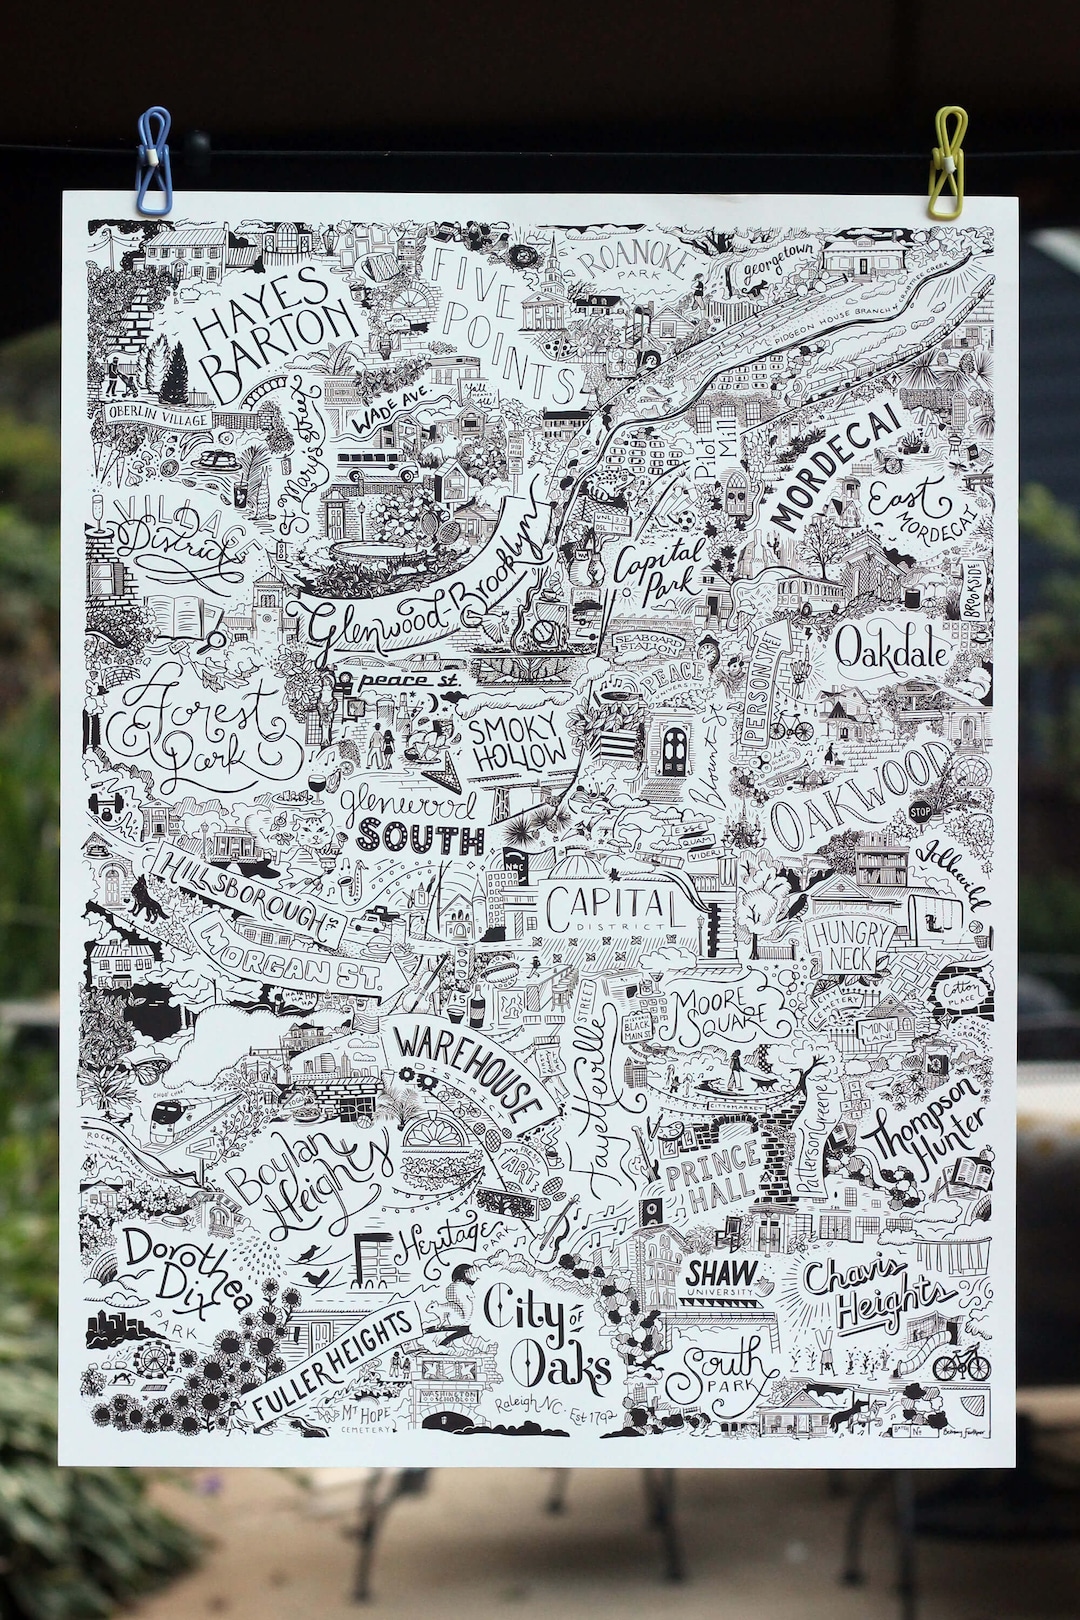 HAYES
BARTON
FIVE
POINTS
ROANOKE
PARK
georgetown
CRABTREE CREEK
PIDGEON HOUSE BRANCH
OBERLIN VILLAGE
St Mary's Street
WADE AVE.
Y'all
means
all!
Pilot
Mill
MORDECAI
East
MORDECAI
VILLAGE
District
Glenwood-Brooklyn
Capital
Park
BROOKSIDE
SEABOARD
STATION
PERSON ST
Oakdale
peace st.
PEACE
UNIVERSITY
Forest
Park
SMOKY
HOLLOW
Blount St
OAKWOOD
STOP
glenwood
SOUTH
ESSE
QUAM
VIDERI
Idlewild
HILLSBOROUGH ST
N C
CAPITAL
DISTRICT
HUNGRY
NECK
MORGAN ST.
Cotton
PLACE
MOORE
SQUARE
BLACK
MAIN ST
MONIE
LANE
WAREHOUSE
DISTRICT
Fayetteville
STREET
CITY MARKET
ROCKY
BRANCH
Boylan
Heights
ART
PRINCE
HALL
Thompson
Hunter
Dorothea
Dix
PARK
Heritage
PARK
SHAW
UNIVERSITY
Chavis
Heights
City
OF
Oaks
Raleigh, NC. Est 1792
FULLER HEIGHTS
WASHINGTON
SCHOOL
MT HOPE
CEMETERY
South
PARK
Brittany Faulkner